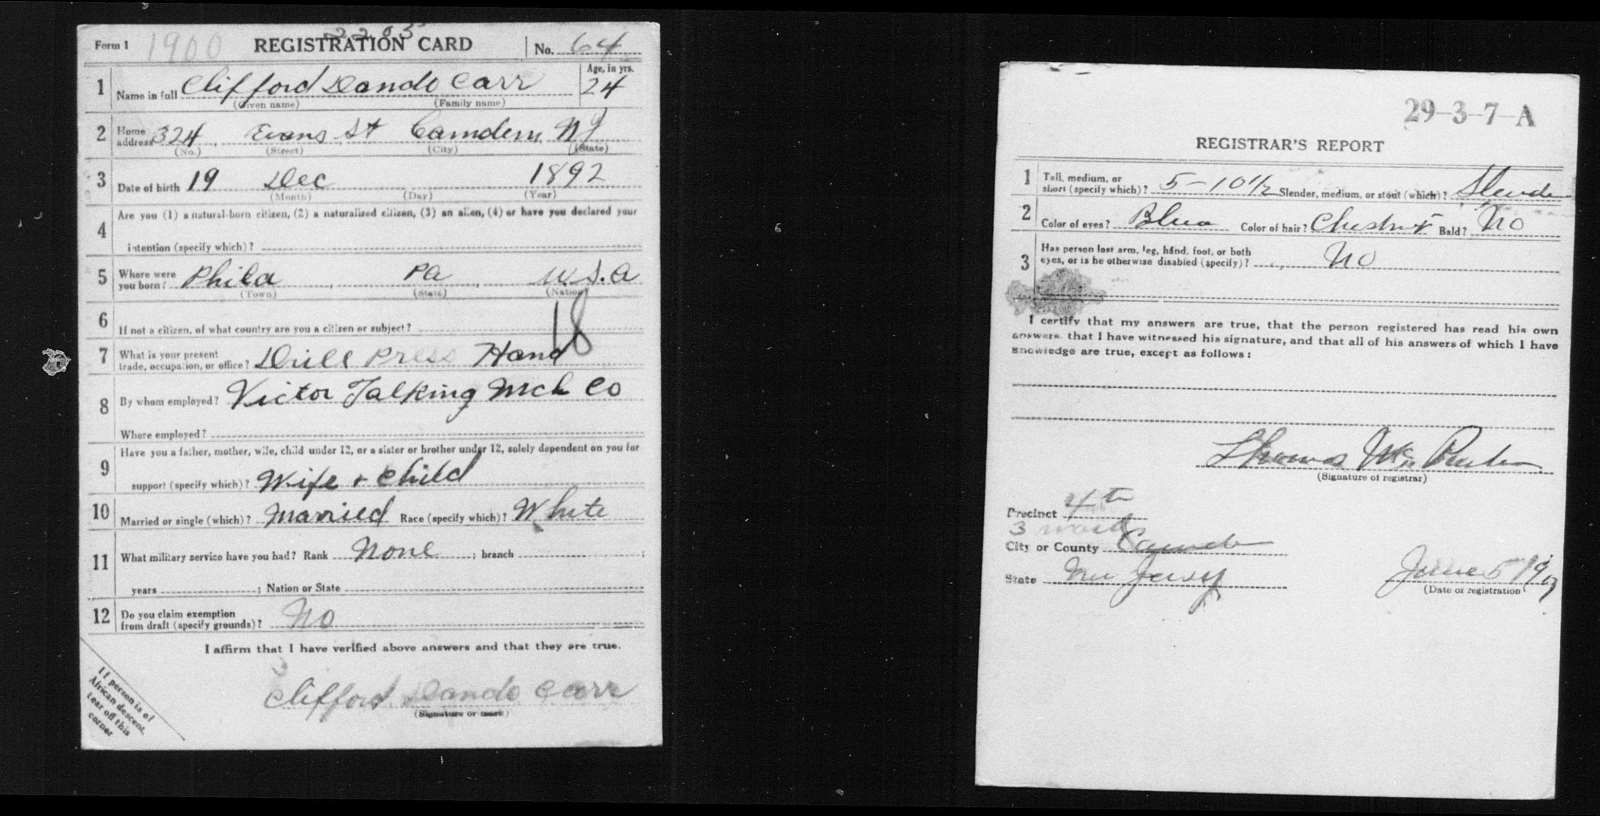 2203
Form 1 1900 REGISTRATION CARD No. 64
1 Name in full Clifford Dando Carr Age, in yrs. 24
(Given name) (Family name)
2 Home address 324 Evans St Camden, NJ
(No.) (Street) (City) (State)
3 Date of birth 19 Dec 1892
(Month) (Day) (Year)
4 Are you (1) a natural-born citizen, (2) a naturalized citizen, (3) an alien, (4) or have you declared your
intention (specify which)?
5 Where were you born? Phila Pa U.S.A
(Town) (State) (Nation)
6 If not a citizen, of what country are you a citizen or subject?
18
7 What is your present trade, occupation, or office? Drill Press Hand
8 By whom employed? Victor Talking Mch Co
Where employed?
9 Have you a father, mother, wife, child under 12, or a sister or brother under 12, solely dependent on you for
support (specify which)? Wife + child
10 Married or single (which)? Married Race (specify which)? White
11 What military service have you had? Rank None ; branch ;
years ; Nation or State
12 Do you claim exemption from draft (specify grounds)? No
I affirm that I have verified above answers and that they are true.
Clifford Dando Carr
(Signature or mark)
If person is of
African descent,
tear off this
corner
29-3-7-A
REGISTRAR'S REPORT
1 Tall, medium, or short (specify which)? 5-10 1/2 Slender, medium, or stout (which)? Slender
2 Color of eyes? Blue Color of hair? Chestnut Bald? No
3 Has person lost arm, leg, hand, foot, or both
eyes, or is he otherwise disabled (specify)? No
I certify that my answers are true, that the person registered has read his own
answers, that I have witnessed his signature, and that all of his answers of which I have
knowledge are true, except as follows:
Thomas
(Signature of registrar)
Precinct 4th
3 ward
City or County Camden
State New Jersey June 5 1917
(Date of registration)